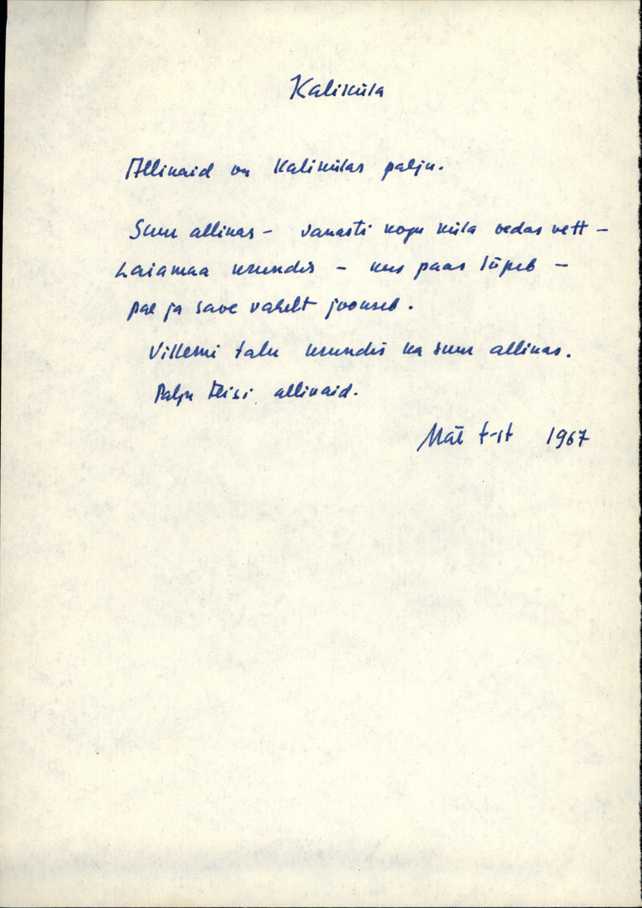 Kaliküla
Allikaid on Kalikülas palju.
Suur allikas – vanasti kogu küla vedas vett –
Laiamaa krundis – kus paas lõpeb –
pae ja save vahelt jookseb.
Villemi talu krundis ka suur allikas.
Palju teisi allikaid.
Mäe t-st 1967